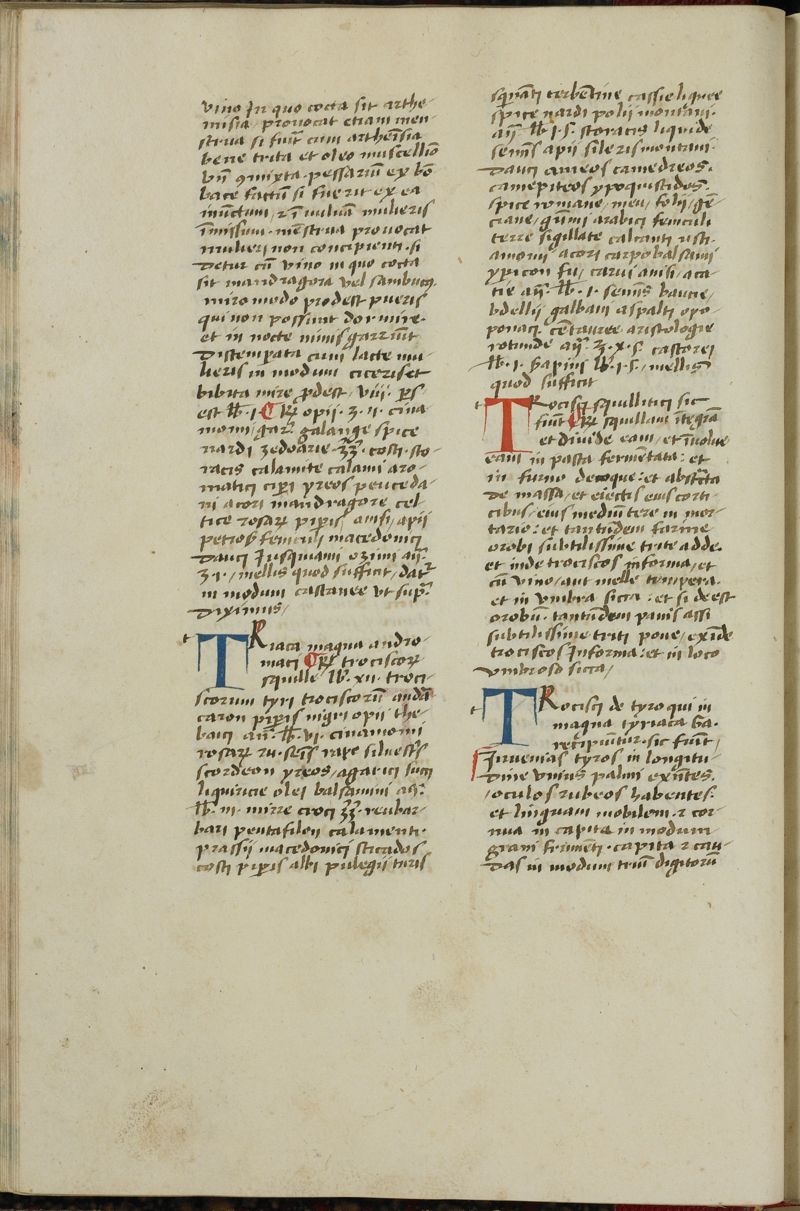 vino Jn quo cocta sit arthe-
misia / provocat etiam men-
strua si fuerit cum arthemisia
bene trita et oleo muscellino
bñ ꝯmixta. pessariū ex bō-
bace factū si fuerit ex ea
inunctum / ⁊ ī vuluā mulieris
īmissum. mēstrua provocat
mulieri non concipienti. si
Detur cū vino in quo cocta
sit mandragora vel sambucꝫ
miro modo prodest pueris
qui non possunt dormire.
et in nocte nimis garriūt
Distemperata cum lacte mu-
lieris in modum ciceris et
bibita mire ꝓdest / viij. ꝑs
est lb. i. Rx opij. ʒ. ij. cina
momi / gar. galange spice
nardi zedoarie ℥. costi. sto-
racis calamite calami aro-
matici ciperi yreos peuceda-
ni acori mandragore cel-
tice rosaꝝ piperis anisi / apij
petros femculi macedonici
Dauci Jusquiami ozimi añ.
ʒ. i. / mellis quod sufficit / dat̄
in modum castanee vt supͣ
Diximus /
TRiaca magna andro-
maci Rx trociscoꝝ
squille lb. xii. troci-
scorum tyri trociscorū andā
caron piperis nigri opij the-
baici añ. lb. vi. cinamomi
rosaꝝ seīs rape siluestris
scordeon yreos / agarici succi
liquiricie olei balsamini añ.
lb. iii. mirre croci ℥. reubar-
bari pentafilon calamenti.
prassij macedonici sticados
costi piperis albi pulegij turis
sqͥnāti terbentine cassie liquee
spice nardi polij montani.
añ. lb. i. s. storacis liquide
semīs apij sileris montani.
Dauci ameos camedreos.
camepiteos ypoquistidos.
spice romane / meu / folij / gē-
ciane / gūmi arabici femculi
terre sigillate calcanti usti.
amomi acori carpobalsami
ypericon fu / carui anisi / aca-
cie añ. lb. i. semīs baucie /
bdellij galbani aspalti opo-
ponaci. cētauree aristologie
rotunde añ. ʒ. x. s. castorei
lb. i. sapini lb. i. s. / mellis
quod sufficit
TRocisci squillitici sic
fiūt Rx squillam ītegrā
et diuide eam / et īuolue
eam in pasta fermētata: et
in furno decoque: et abstrͣcta
De massa / et eiectis eius corti-
cibus / eius mediū tere in mor-
tario: et tantūdem farine
orobi subtilissime trite adde.
et inde trociscos informa / et
cū vino / aut melle tempera.
et in vmbra sicca: et si deest
orobū. tantūdem panis assi
subtilissime triti pone / exīde
trociscos Jnforma: et in loco
vmbroso sicca /
TRocisci de tyro qui in
magna tyriaca ga.
recipiūtur. sic fiūt /
Jnuenias tyros in longitu-
Dine vnius palmi exītes.
/ oculos rubeos habentes.
et linguam mobilem. ⁊ cor-
nua in capita in modum
grani frumēti. capita ⁊ cau-
Das in modum triū digitorū